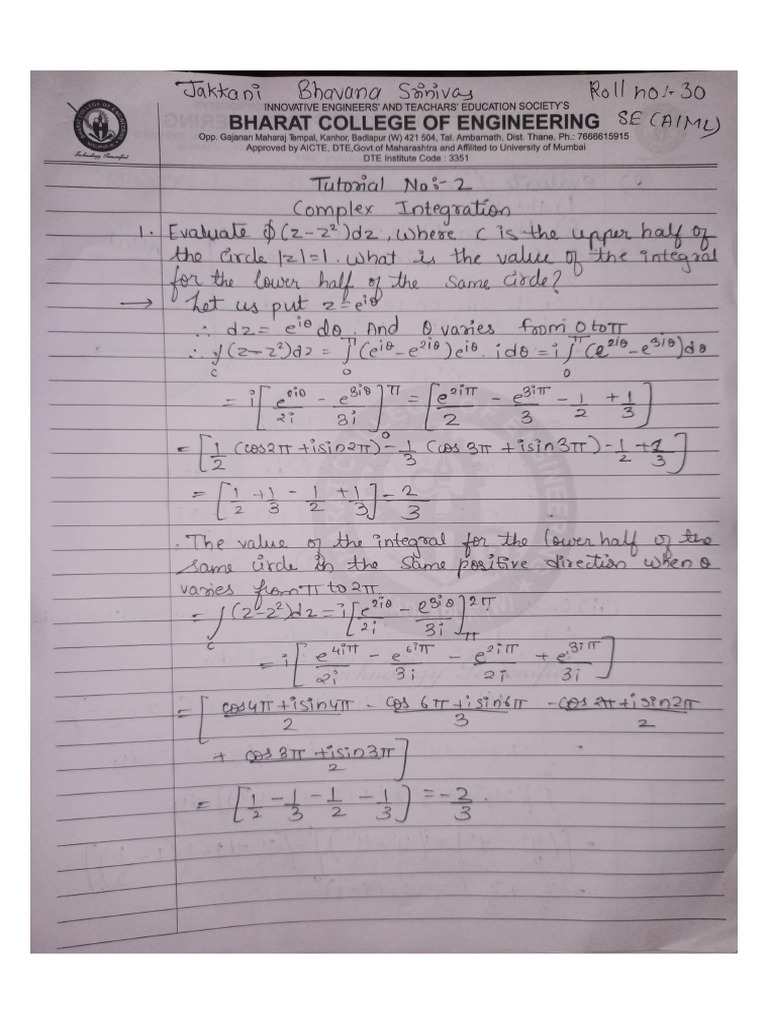 Jakkani Bhavana Srinivas Roll no:- 30
INNOVATIVE ENGINEERS' AND TEACHARS' EDUCATION SOCIETY'S
BHARAT COLLEGE OF ENGINEERING SE (AIML)
Opp. Gajanan Maharaj Tempal, Kanhor, Badlapur (W) 421 504, Tal. Ambarnath, Dist. Thane. Ph.: 7666615915
Approved by AICTE, DTE,Govt.of Maharashtra and Affilited to University of Mumbai
DTE Institute Code : 3351
Tutorial No:- 2
Complex Integration
1. Evaluate ∮(z-z²)dz, where C is the upper half of
the circle |z|=1. what is the value of the integral
for the lower half of the same circle?
→ Let us put z=e^{iθ}
∴ dz = e^{iθ}dθ. And θ varies from 0 to π
∴ ∫_C (z-z²)dz = ∫_0^π (e^{iθ}-e^{2iθ})e^{iθ}.idθ = i∫_0^π (e^{2iθ}-e^{3iθ})dθ
= i[e^{2iθ}/2i - e^{3iθ}/3i]_0^π = [e^{2iπ}/2 - e^{3iπ}/3 - 1/2 + 1/3]
= [1/2 (cos2π+isin2π) - 1/3 (cos 3π+isin3π) - 1/2 + 1/3]
= [1/2 + 1/3 - 1/2 + 1/3] = 2/3
. The value of the integral for the lower half of the
same circle in the same positive direction when θ
varies from π to 2π.
= ∫_C (z-z²)dz = i[e^{2iθ}/2i - e^{3iθ}/3i]_π^{2π}
= i[e^{4iπ}/2i - e^{6iπ}/3i - e^{2iπ}/2i + e^{3iπ}/3i]
= [cos4π+isin4π/2 - cos 6π+isin6π/3 - cos 2π+isin2π/2
+ cos 3π+isin3π/2]
= [1/2 - 1/3 - 1/2 - 1/3] = -2/3.